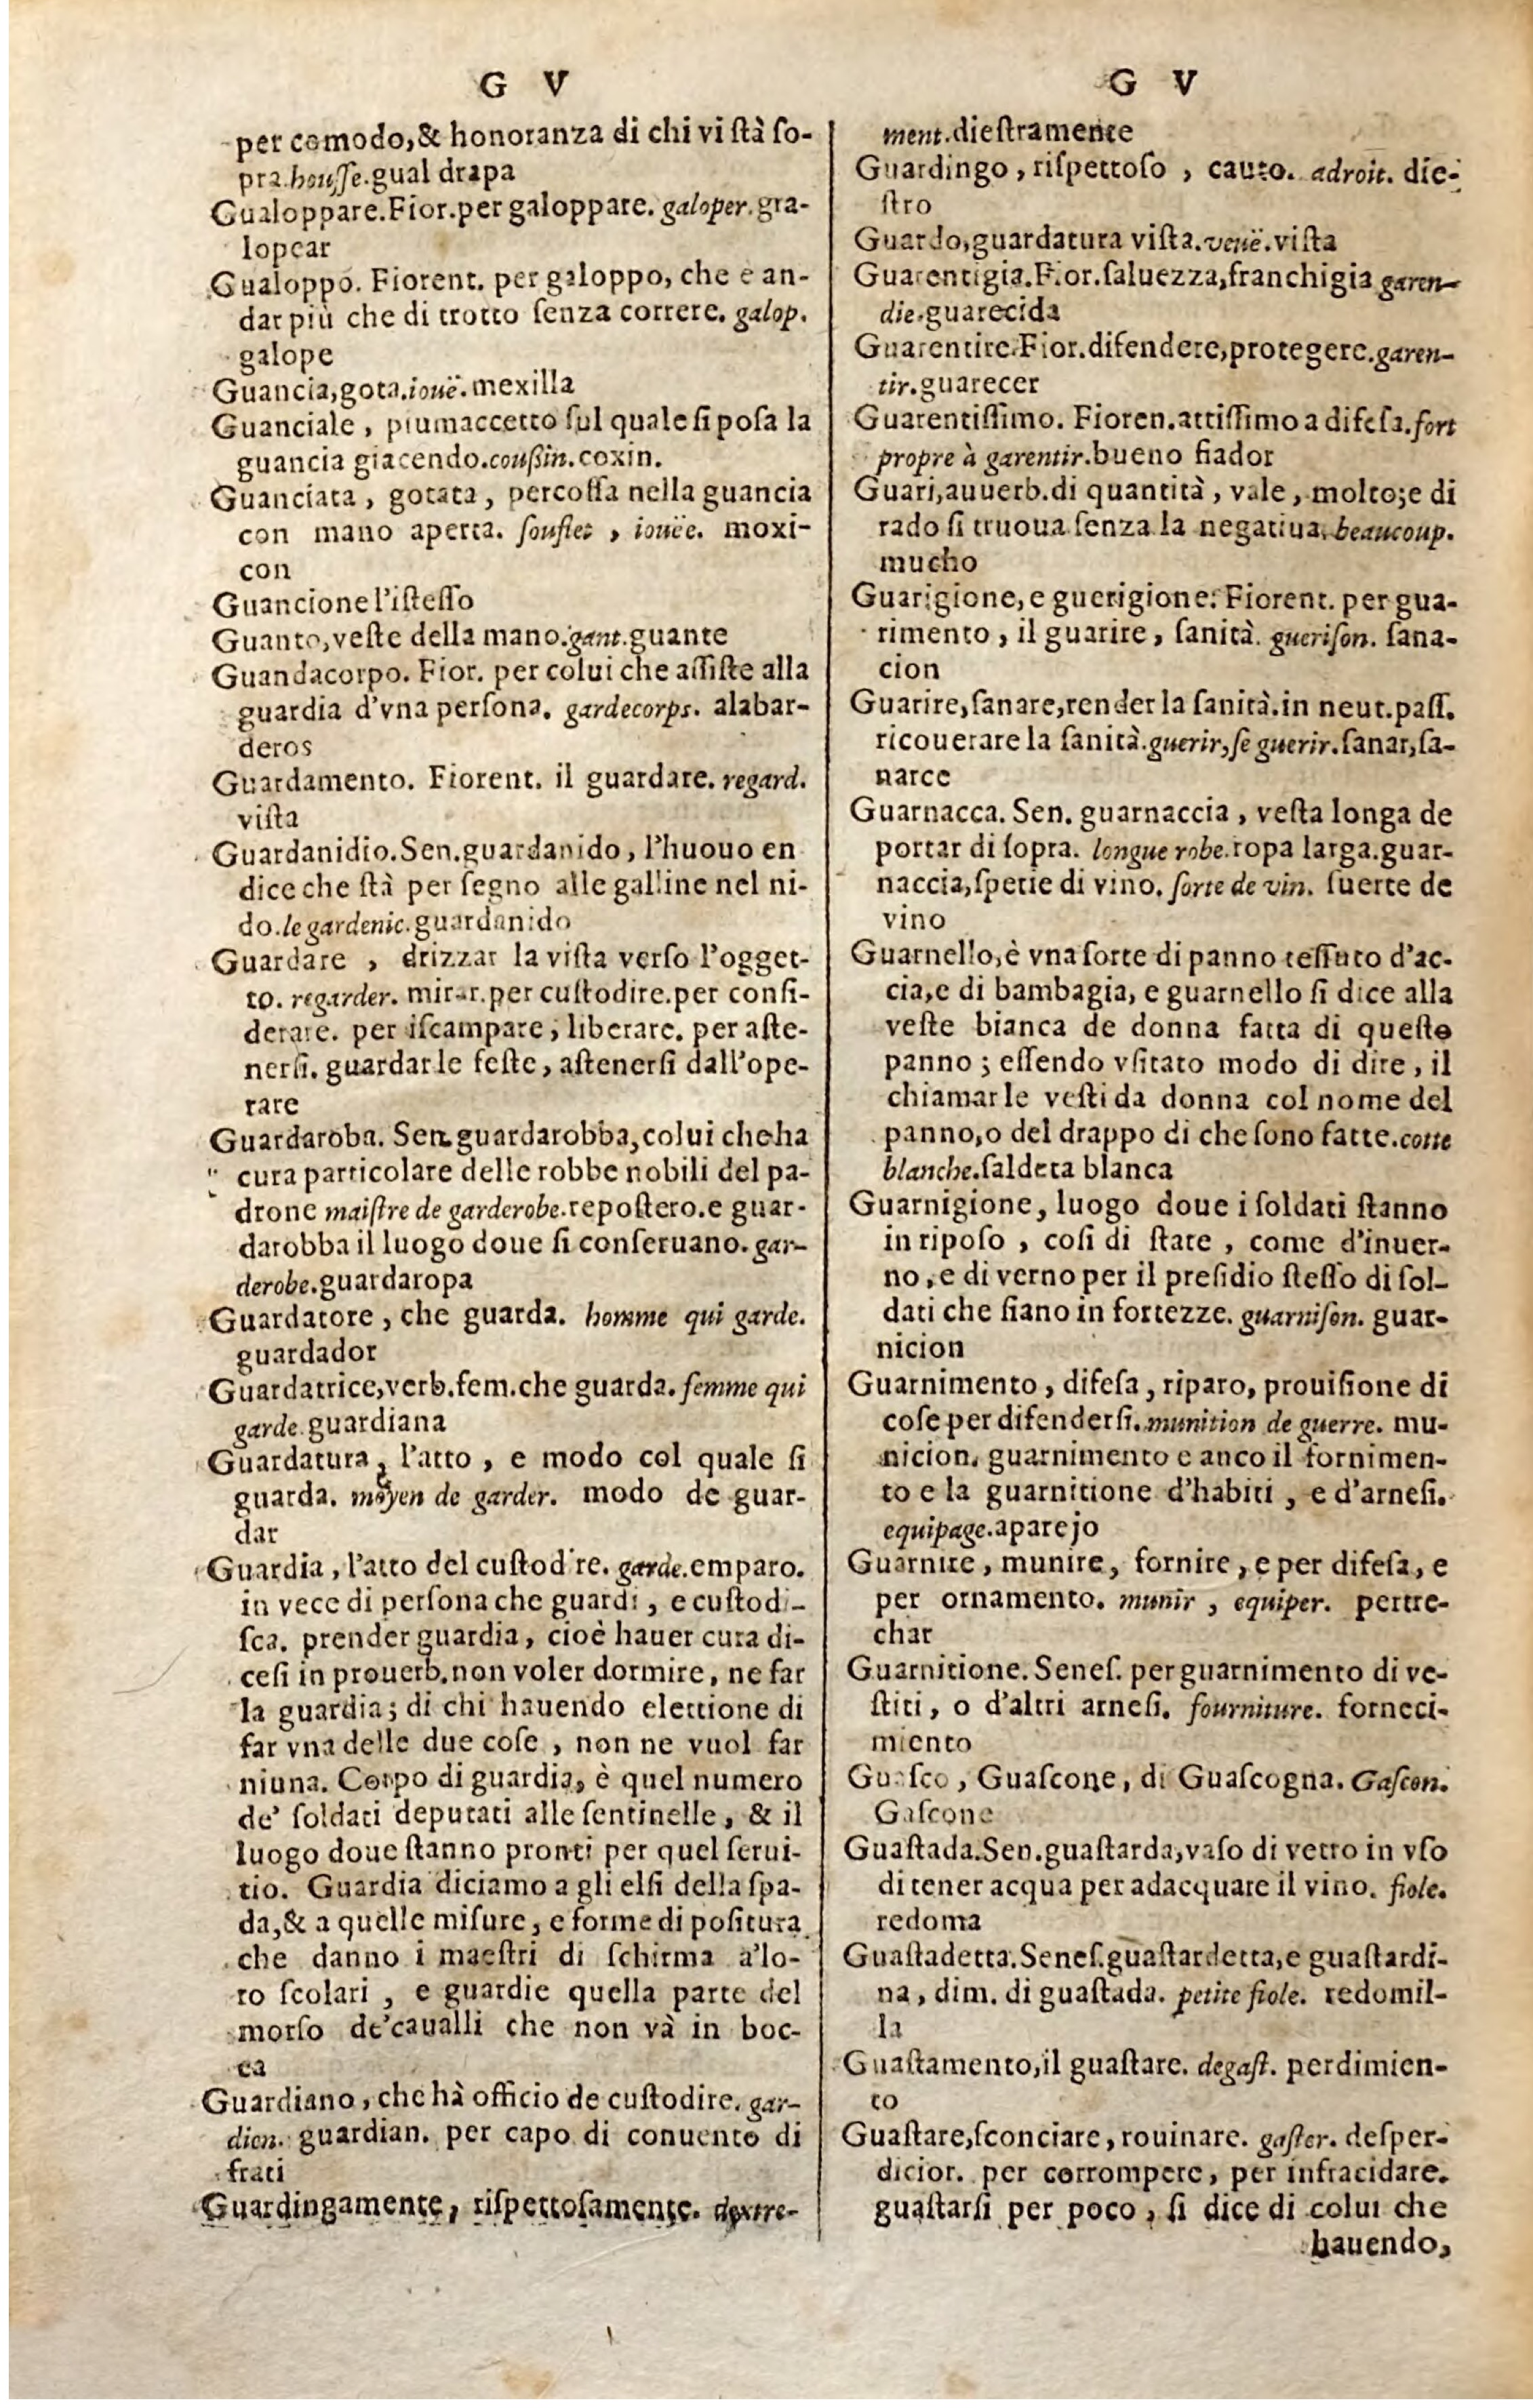 G V
per comodo,& honoranza di chi vi ſtà ſo-
pra.houſſe.gual drapa
Gualoppare.Fior.per galoppare. galoper.gra-
lopear
Gualoppo. Fiorent. per galoppo, che e an-
dar più che di trotto ſenza correre. galop.
galope
Guancia,gota.iouë.mexilla
Guanciale , piumaccetto ſul quale ſi poſa la
guancia giacendo.couſsin.coxin.
Guanciata , gotata , percoſſa nella guancia
con mano aperta. ſouflet , iouëe. moxi-
con
Guancione l'iſteſſo
Guanto,veſte della mano.gant.guante
Guandacorpo. Fior. per colui che aſſiſte alla
guardia d'vna perſona. gardecorps. alabar-
deros
Guardamento. Fiorent. il guardare. regard.
viſta
Guardanidio.Sen.guardanido, l'huouo en
dice che ſtà per ſegno alle galline nel ni-
do.le gardenic.guardanido
Guardare , drizzar la viſta verſo l'ogget-
to. regarder. mirar.per cuſtodire.per conſi-
derare. per iſcampare, liberare. per aſte-
nerſi. guardar le feſte, aſtenerſi dall'ope-
rare
Guardaroba. Sen.guardarobba,colui che ha
cura particolare delle robbe nobili del pa-
drone maiſtre de garderobe.repoſtero.e guar-
darobba il luogo doue ſi conſeruano.gar-
derobe.guardaropa
Guardatore , che guarda. homme qui garde.
guardador
Guardatrice,verb.fem.che guarda. femme qui
garde.guardiana
Guardatura, l'atto , e modo col quale ſi
guarda. moyen de garder. modo de guar-
dar
Guardia , l'atto del cuſtodire. garde.emparo.
in vece di perſona che guardi , e cuſtodi-
ſca. prender guardia, cioè hauer cura di-
ceſi in prouerb.non voler dormire, ne far
la guardia; di chi hauendo elettione di
far vna delle due coſe , non ne vuol far
niuna. Corpo di guardia, è quel numero
de' ſoldati deputati alle ſentinelle , & il
luogo doue ſtanno pronti per quel ſerui-
tio. Guardia diciamo a gli elſi della ſpa-
da,& a quelle miſure, e forme di poſitura
che danno i maeſtri di ſchirma a'lo-
ro ſcolari , e guardie quella parte del
morſo de'caualli che non và in boc-
ca
Guardiano , che hà officio de cuſtodire. gar-
dien. guardian. per capo di conuento di
frati
Guardingamente, riſpettoſamente. dextre-
G V
ment.dieſtramente
Guardingo , riſpettoſo , cauto. adroit. die-
ſtro
Guardo,guardatura viſta.veuë.viſta
Guarentigia.Fior.ſaluezza,franchigia garen-
die.guarecida
Guarentire.Fior.difendere,protegere.garen-
tir.guarecer
Guarentiſſimo. Fioren.attiſſimo a difeſa.fort
propre à garentir.bueno fiador
Guari,auuerb.di quantità , vale , molto;e di
rado ſi truoua ſenza la negatiua.beaucoup.
mucho
Guarigione, e guerigione. Fiorent. per gua-
rimento , il guarire, ſanità. gueriſon. ſana-
cion
Guarire,ſanare,render la ſanità.in neut.paſſ.
ricouerare la ſanità.guerir,ſe guerir.ſanar,ſa-
narce
Guarnacca. Sen. guarnaccia , veſta longa de
portar di ſopra. longue robe.ropa larga.guar-
naccia,ſpetie di vino. ſorte de vin. ſuerte de
vino
Guarnello,è vna ſorte di panno teſſuto d'ac-
cia,e di bambagia, e guarnello ſi dice alla
veſte bianca de donna fatta di queſto
panno ; eſſendo vſitato modo di dire , il
chiamar le veſti da donna col nome del
panno,o del drappo di che ſono fatte.cotte
blanche.ſaldeta blanca
Guarnigione, luogo doue i ſoldati ſtanno
in ripoſo , coſi di ſtate , come d'inuer-
no,e di verno per il preſidio ſteſſo di ſol-
dati che ſiano in fortezze. guarniſon. guar-
nicion
Guarnimento , difeſa , riparo, prouiſione di
coſe per difenderſi.munition de guerre. mu-
nicion. guarnimento e anco il fornimen-
to e la guarnitione d'habiti , e d'arneſi.
equipage.aparejo
Guarnire , munire , fornire , e per difeſa , e
per ornamento. munir , equiper. pertre-
char
Guarnitione. Seneſ. per guarnimento di ve-
ſtiti , o d'altri arneſi. fourniture. forneci-
miento
Guaſco , Guaſcone, di Guaſcogna. Gaſcon.
Gaſcone
Guaſtada.Sen.guaſtarda,vaſo di vetro in vſo
di tener acqua per adacquare il vino. fiole.
redoma
Guaſtadetta.Seneſ.guaſtardetta,e guaſtardi-
na , dim. di guaſtada. petite fiole. redomil-
la
Guaſtamento,il guaſtare. degaſt. perdimien-
to
Guaſtare,ſconciare, rouinare. gaſter. deſper-
dicior. per corrompere, per infracidare.
guaſtarſi per poco , ſi dice di colui che
hauendo,